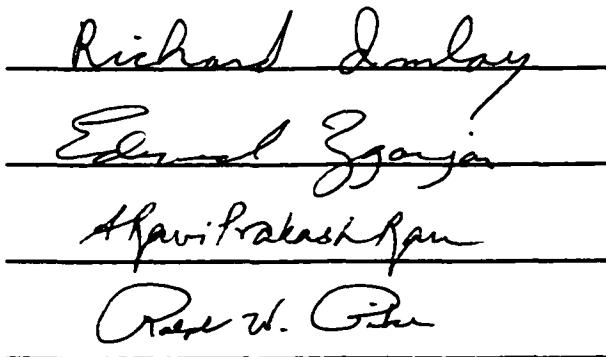 Richard Imlay
Edward Zganjar
A. Ravi Prakash Rau
Ralph W. Pike